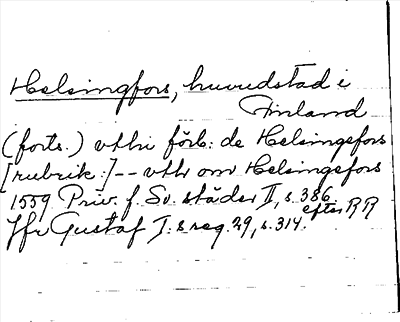 Helsingfors, huvudstad i
Finland
(forts.) vthi förb: de Helsingefors
[rubrik:] -- vthr om Helsingefors
1559 Priv. f. Sv. städer II, s. 386
efter RR
Jfr Gustaf I:s reg. 29, s. 314.